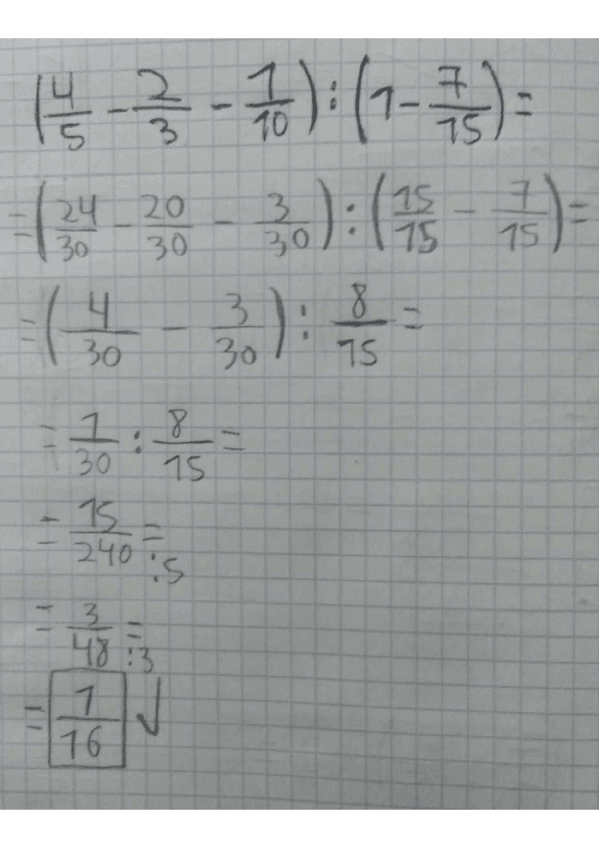 (4/5 - 2/3 - 1/10) : (1 - 7/15) =
= (24/30 - 20/30 - 3/30) : (15/15 - 7/15) =
= (4/30 - 3/30) : 8/15 =
= 1/30 : 8/15 =
= 15/240 = :5
= 3/48 = :3
= 1/16 ✓